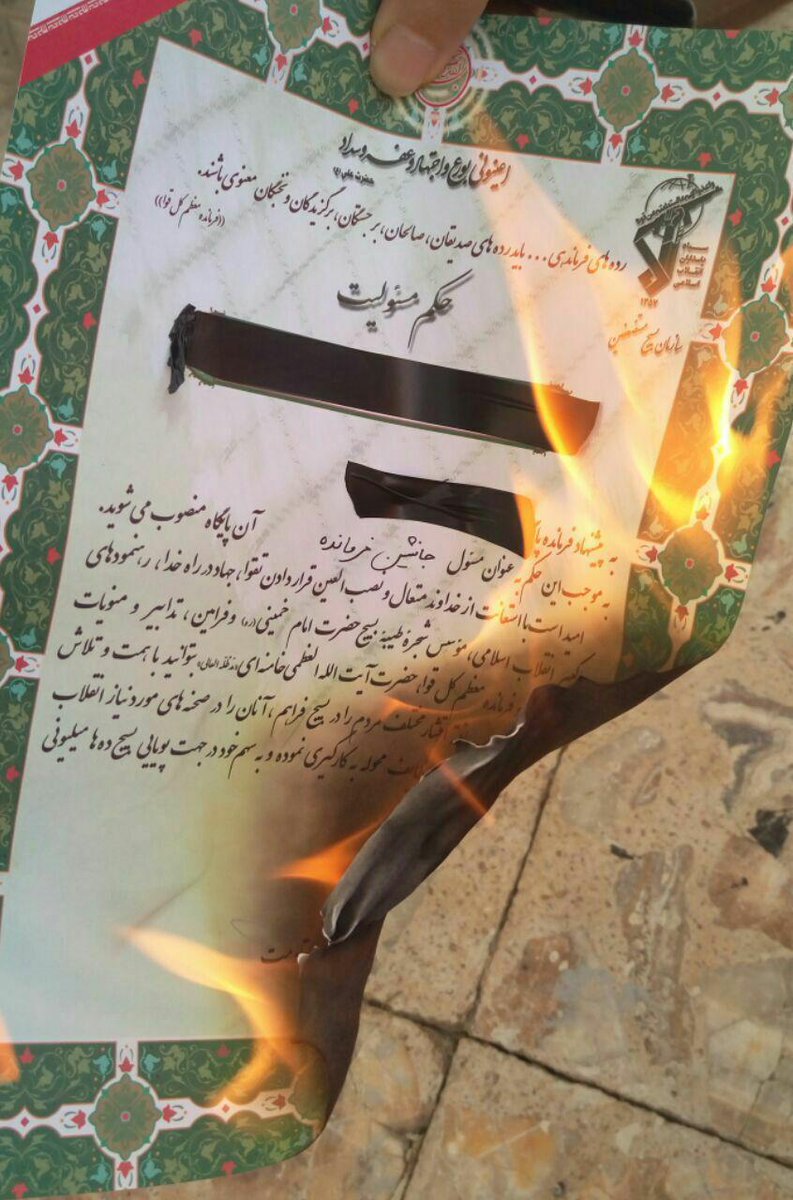 اعینونی بورع و اجتهاد و عفه و سداد
حضرت علی (ع)
رده های فرماندهی ... باید رده های صدیقان، صالحان، برجستگان، برگزیدگان و نخبگان معنوی باشند.
((فرمانده معظم کل قوا))
سپاه
پاسداران
انقلاب
اسلامی
۱۳۵۷
سازمان بسیج مستضعفین
حکم مسئولیت
به پیشنهاد فرمانده
به موجب این حکم به عنوان مسئول جانشین فرمانده آن پایگاه منصوب می شوید.
امید است با استعانت از خداوند متعال و نصب العین قرار دادن تقوا، جهاد در راه خدا، رهنمودهای
کبیر انقلاب اسلامی، مؤسس شجره طیبه بسیج حضرت امام خمینی (ره) و فرامین، تدابیر و منویات
فرمانده معظم کل قوا، حضرت آیت الله العظمی خامنه ای (مدظله العالی) بتوانید با همت و تلاش
اقشار مختلف مردم را در بسیج فراهم، آنان را در صحنه های مورد نیاز انقلاب
محوله به کارگیری نموده و به سهم خود در جهت پویایی بسیج ده ها میلیونی